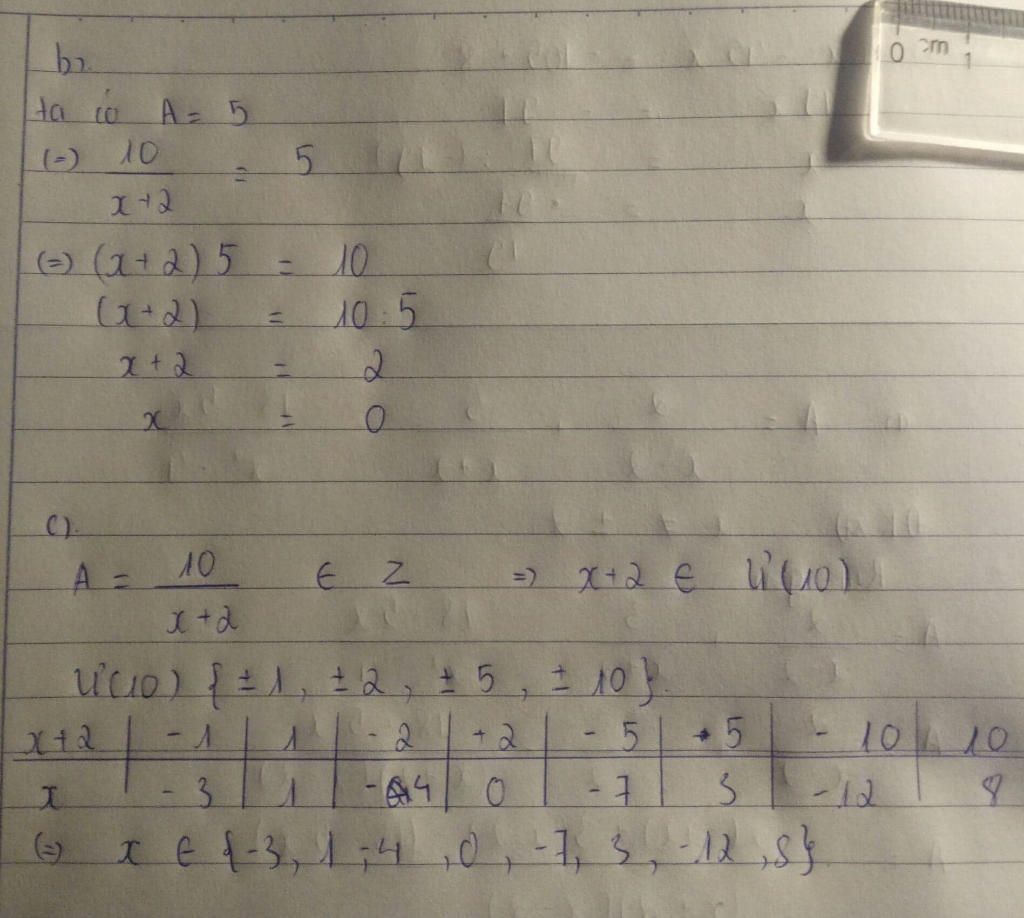 b).
ta có A = 5
(=) 10/(x+2) = 5
(=) (x+2) 5 = 10
(x+2) = 10:5
x+2 = 2
x = 0
c).
A = 10/(x+2) ∈ Z => x+2 ∈ Ư(10)
Ư(10) {±1, ±2, ±5, ±10}.
x+2 | -1 | 1 | -2 | +2 | -5 | 5 | -10 | 10
x | -3 | 1 | -4 | 0 | -7 | 3 | -12 | 8
(=) x ∈ {-3, 1, -4, 0, -7, 3, -12, 8}
0 cm 1